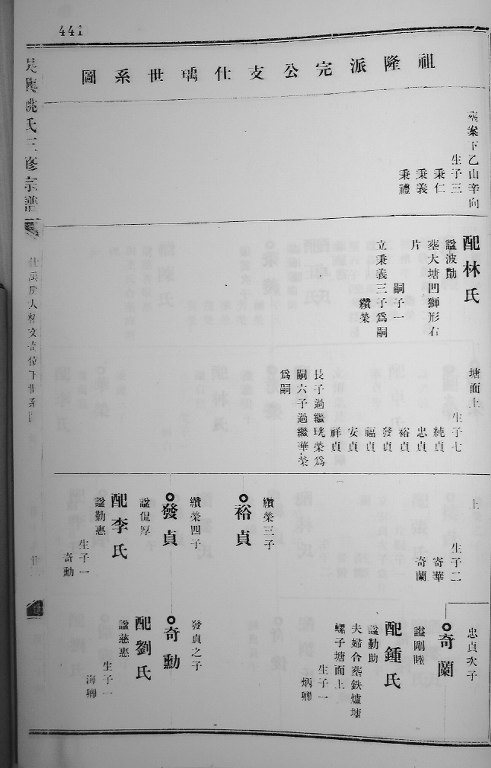 441
祖隆派完公支仕瑀世系圖
吳興姚氏三修宗譜
塟案下乙山辛向
生子三
秉仁
秉義
秉禮
配林氏
諡波勤
塟大塘凹獅形右
片
嗣子一
立秉義三子爲嗣
纘榮
塘面上
生子七
純貞
忠貞
裕貞
發貞
福貞
安貞
祥貞
長子過繼晄榮爲
嗣六子過繼華榮
爲嗣
上
生子二
寄華
寄蘭
纘榮三子
裕貞
纘榮四子
發貞
諡侃厚
配李氏
諡勤惠
生子一
奇勳
忠貞次子
奇蘭
諡剛睦
配鍾氏
諡勤助
夫婦合塟鉄爐塘
螺子塘面上
生子一
炳卿
發貞之子
奇勳
配劉氏
諡慈惠
生子一
海卿